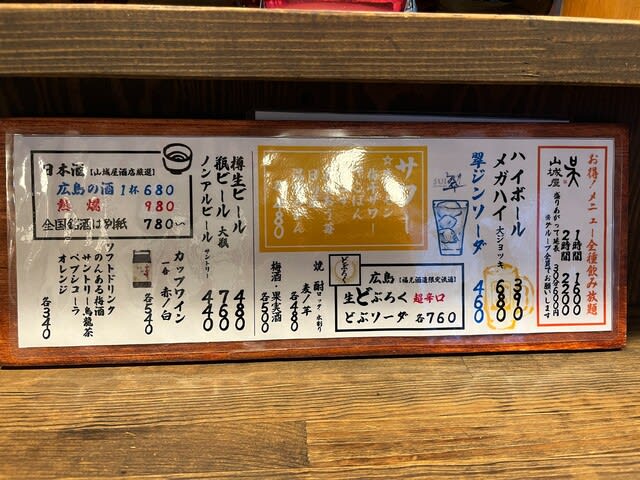 お得！メニュー全種飲み放題
山城屋
1時間 1600
2時間 2200
盛りあがって延長 30分500円
※グループ全員でお願いします
ハイボール 390
メガハイ 大ジョッキ 680
翠ジンソーダ 460
SUI
翠
サワー
梅干サワー
各480
どぶろく
広島
生どぶろく 超辛口
どぶソーダ 各760
焼酎 ロック 水割り
麦/芋 各480
梅酒・果実酒 各550
樽生ビール 480
瓶ビール 大瓶 760
ノンアルビール サントリー 440
日本酒【山城屋酒店厳選】
広島の酒 1杯 680
熱燗 980
全国銘酒は別紙 780〜
カップワイン
一番 赤/白 各540
ソフトドリンク
のんある梅酒
サントリー烏龍茶
ペプシコーラ
オレンジ
各340